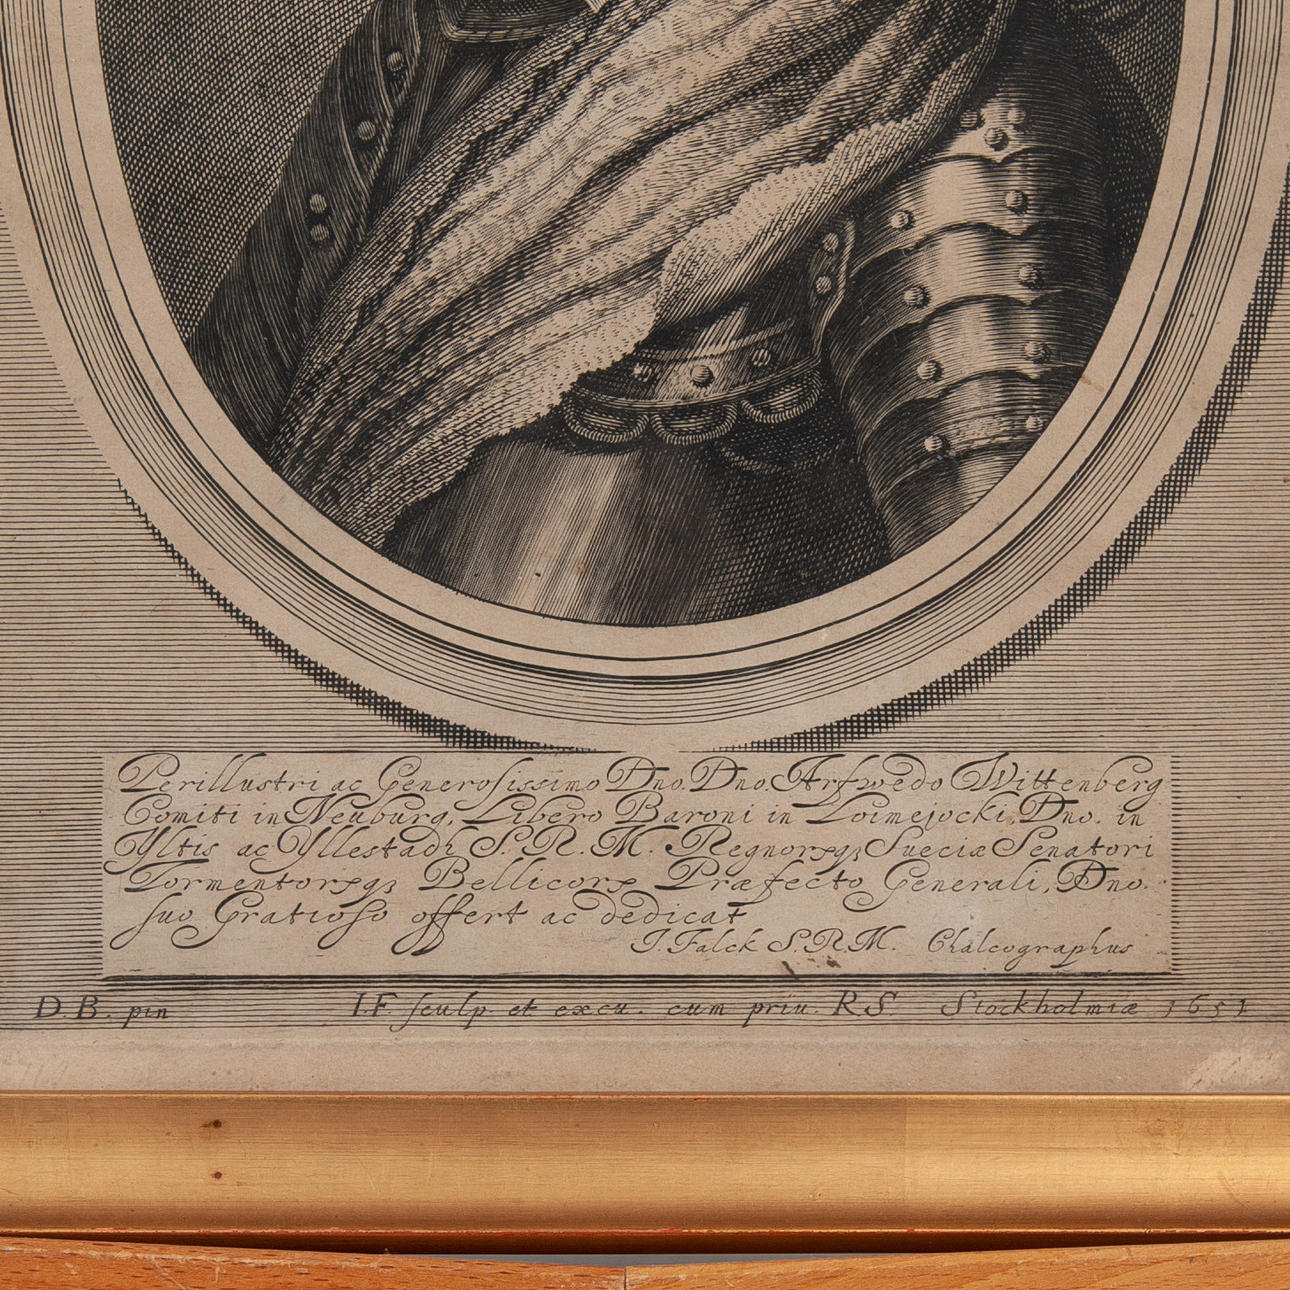 Perillustri ac Generosissimo Dno. Dno. Arfwedo Wittenberg
Comiti in Neuburg, Libero Baroni in Loimejocki, Dno. in
Yltis ac Yllestadh S. R. M. Regnorꝝqꝫ Sueciæ Senatori
Tormentorꝝqꝫ Bellicorꝝ Præfecto Generali, Dno.
suo Gratioso offert ac dedicat
J. Falck S. R. M. Chalcographus
D. B. pin I.F. sculp. et excu. cum priu. R S Stockholmiæ 1651